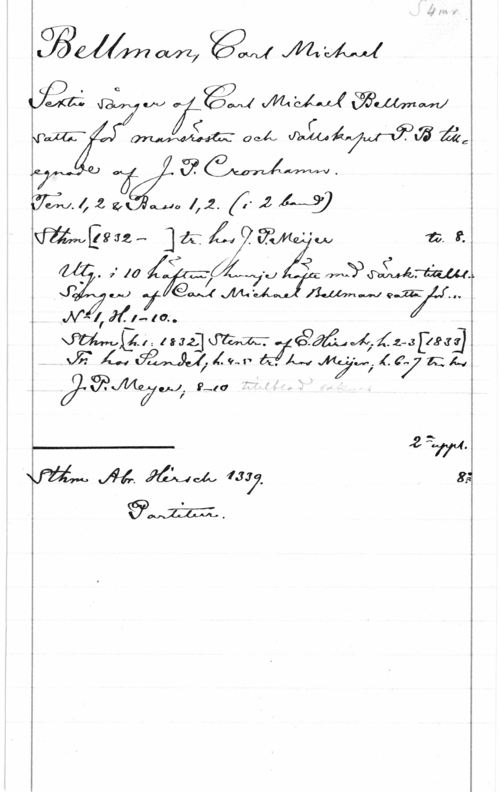 S 4 mr
Bellman, Carl Michael
Sextio sånger af Carl Michael Bellman
satta för mansröster och Sällskapet P. B till-
egnade af J. P. Cronhamn.
Ten. 1, 2 & Basso 1, 2. (i 2 band)
Sthm [1832 - ] tr. hos J. P. Meijer tv. 8.
Utg. i 10 häften, hvarje häfte med särsk. titelbl.
Sånger af Carl Michael Bellman satta för...
No 1, H. 1-10.
Sthm [h. 1: 1832] Stentr. af E. Hirsch, h. 2-3 [1833]
Tr. hos Sundel, h. 4-5 tr. hos Meijer, h. 6-7 tr. hos
J. P. Meyer, 8-10
2a uppl.
Sthm Abr. Hirsch 1339. 8:
Partitur.